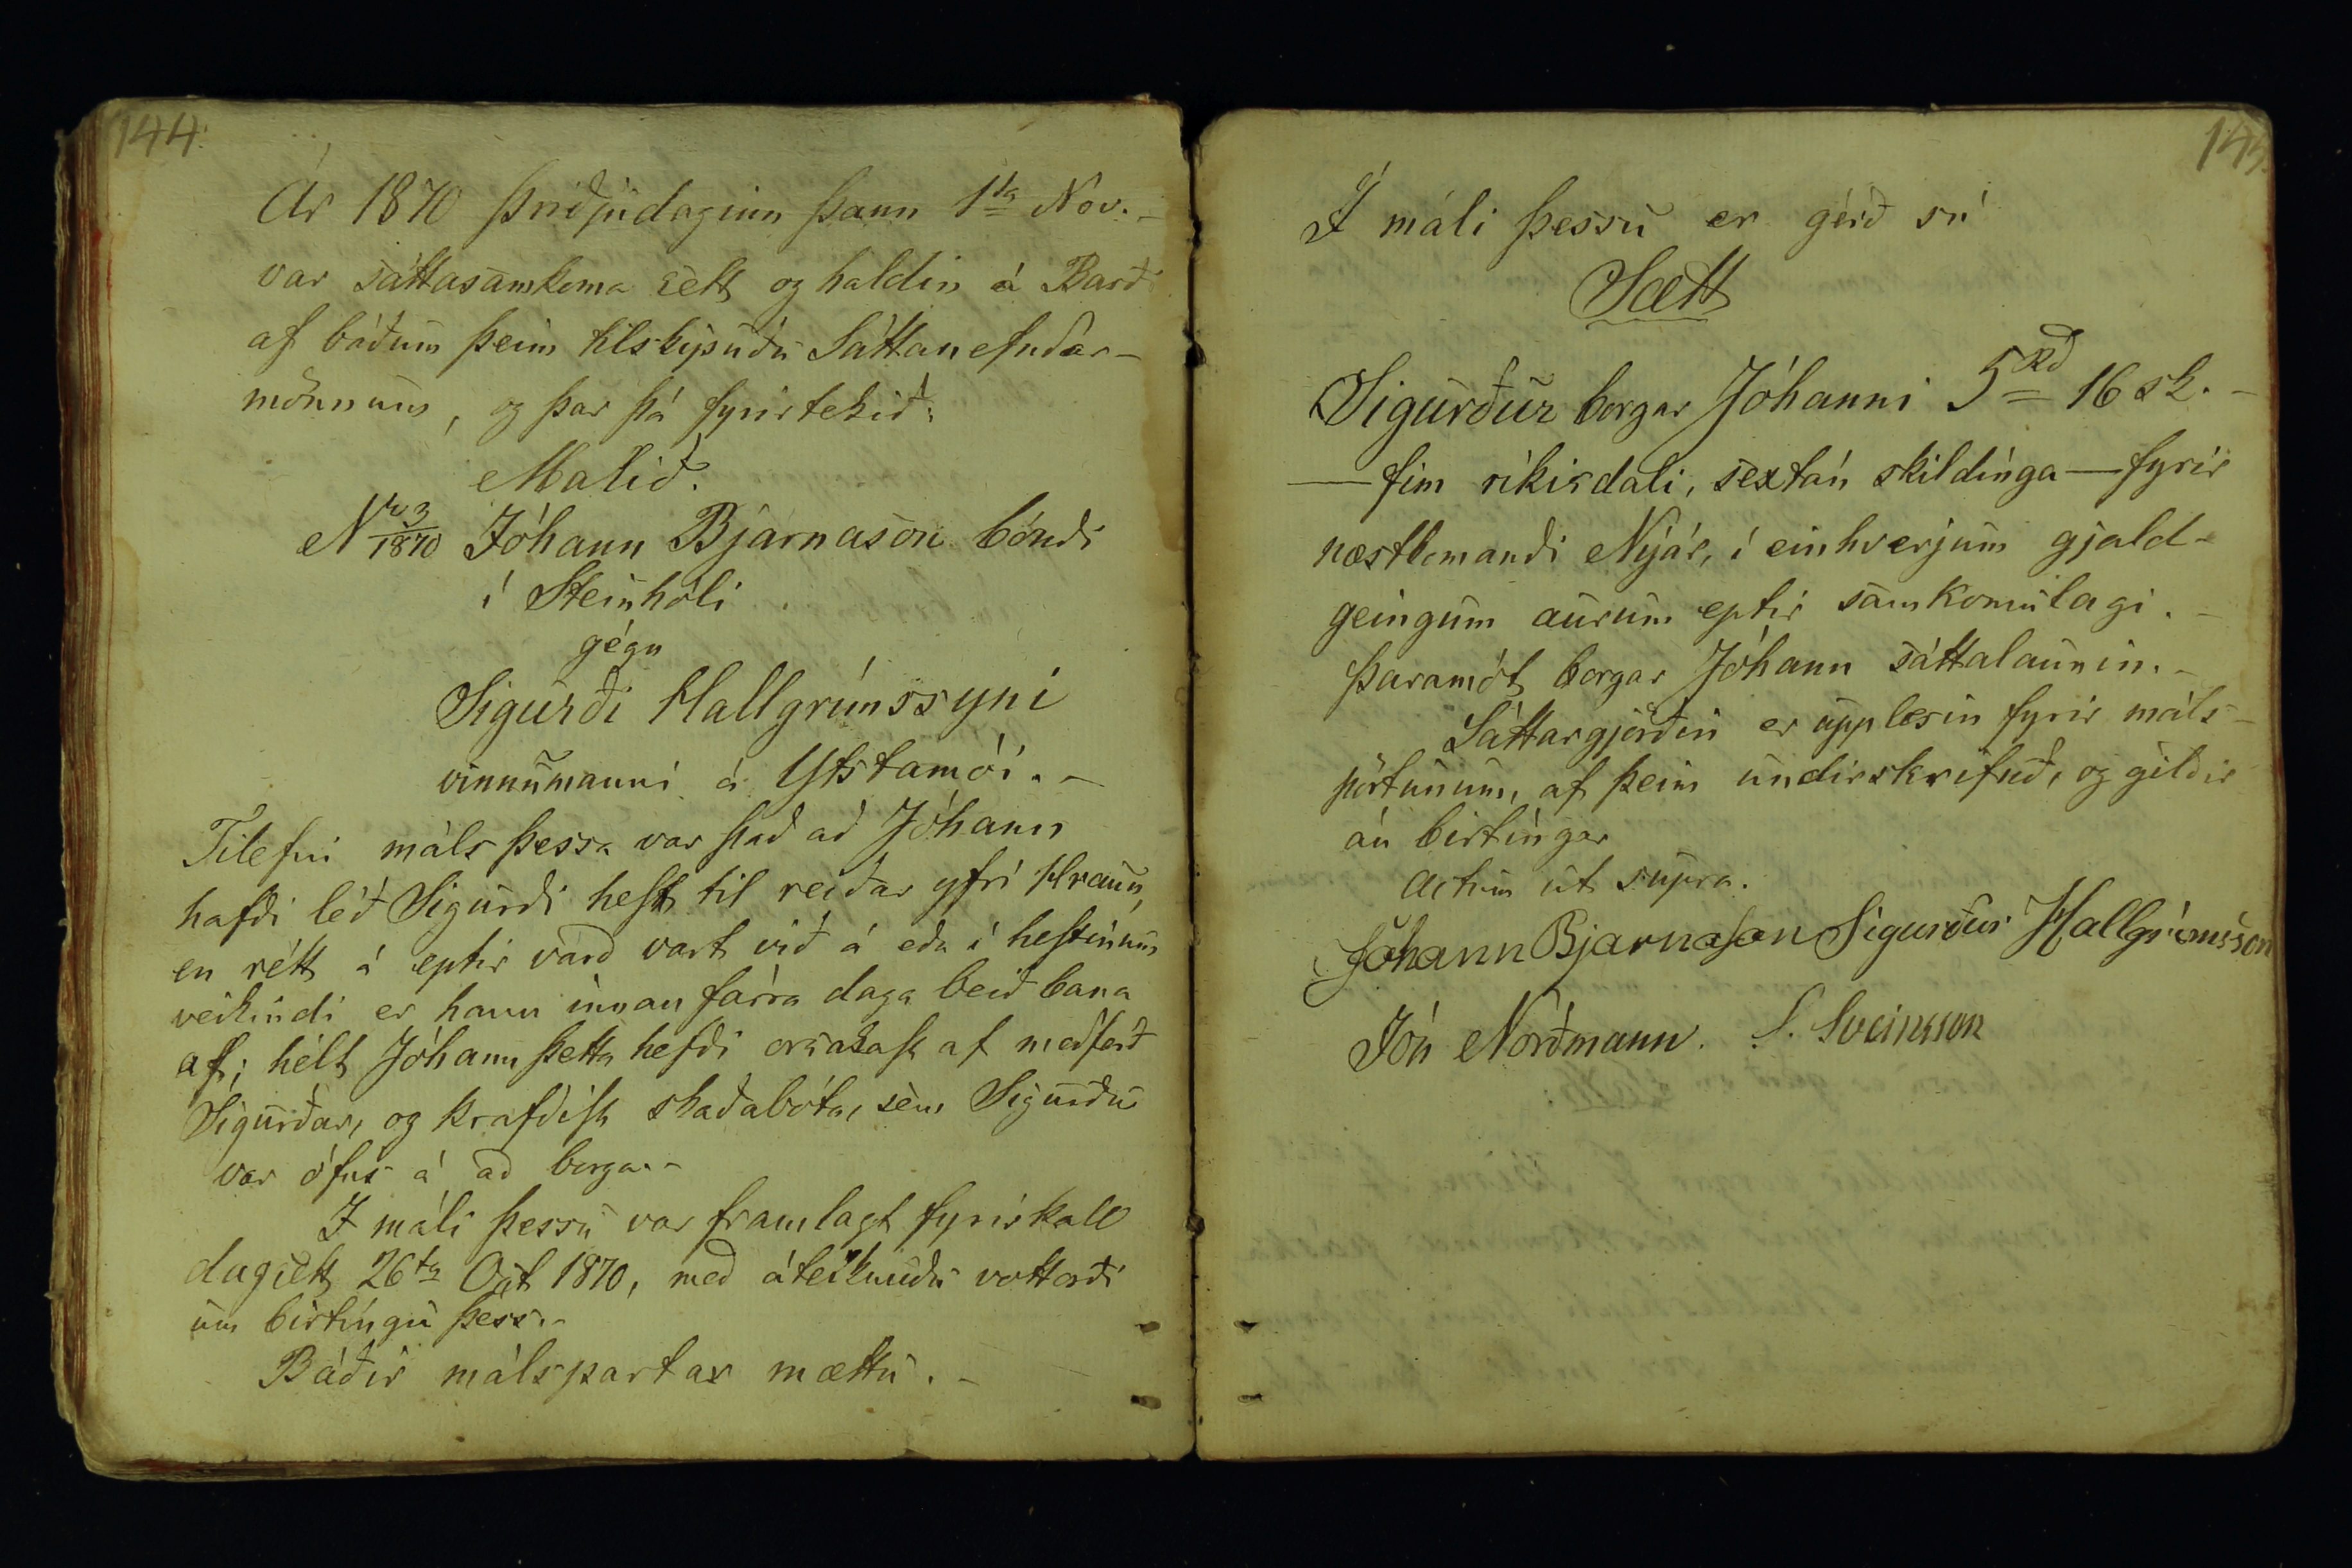 144.
Ár 1870 þriðjudaginn þann 1ta Nov. –
var sáttasamkoma sett og haldin á Barði
af báðum þeim tilskipuðu Sáttanefndar-
mönnum, og þar þá fyrirtekið:
Málið.
Nr 3/1870 Jóhann Bjarnason bóndi
í Steinhóli
gégn
Sigurði Hallgrímssyni
vinnumanni á Ystamói. –
Tilefni máls þessa var það að Jóhann
hafði léð Sigurði hest til reiðar yfrí Hraun,
en rétt á eptir varð vart við á eða í hestinum
veikindi er hann innan fárra daga beið bana
af; hélt Jóhann þetta hefði orsakast af meðferð
Sigurðar, og krafðist skaðabóta, sem Sigurður
var ófús á að borga. –
I máli þessu var framlagt fyrirkall
dagsett 26ta Oct 1870, með áteiknuðu vottorði
um birtíngu þess. –
Báðir málspartar mættu. –
145.
Í máli þessu er gérð sú
Sætt
Sigurður borgar Jóhanni 5 Rd 16 sk. –
— fim ríkisdali, sextán skildínga — fyrir
næstkomandi Nýár, í einhverjum gjald-
geingum aurum eptir samkomulagi. –
Þaramót borgar Jóhann sáttalaunin. –
Sáttargjörðin er upplesin fyrir máls-
pörtunum, af þeim undirskrifuð, og gildir
án birtíngar
Actum ut supra.
Jóhann Bjarnason Sigurður Hallgrímsson
Jón Norðmann. S. Sveinsson